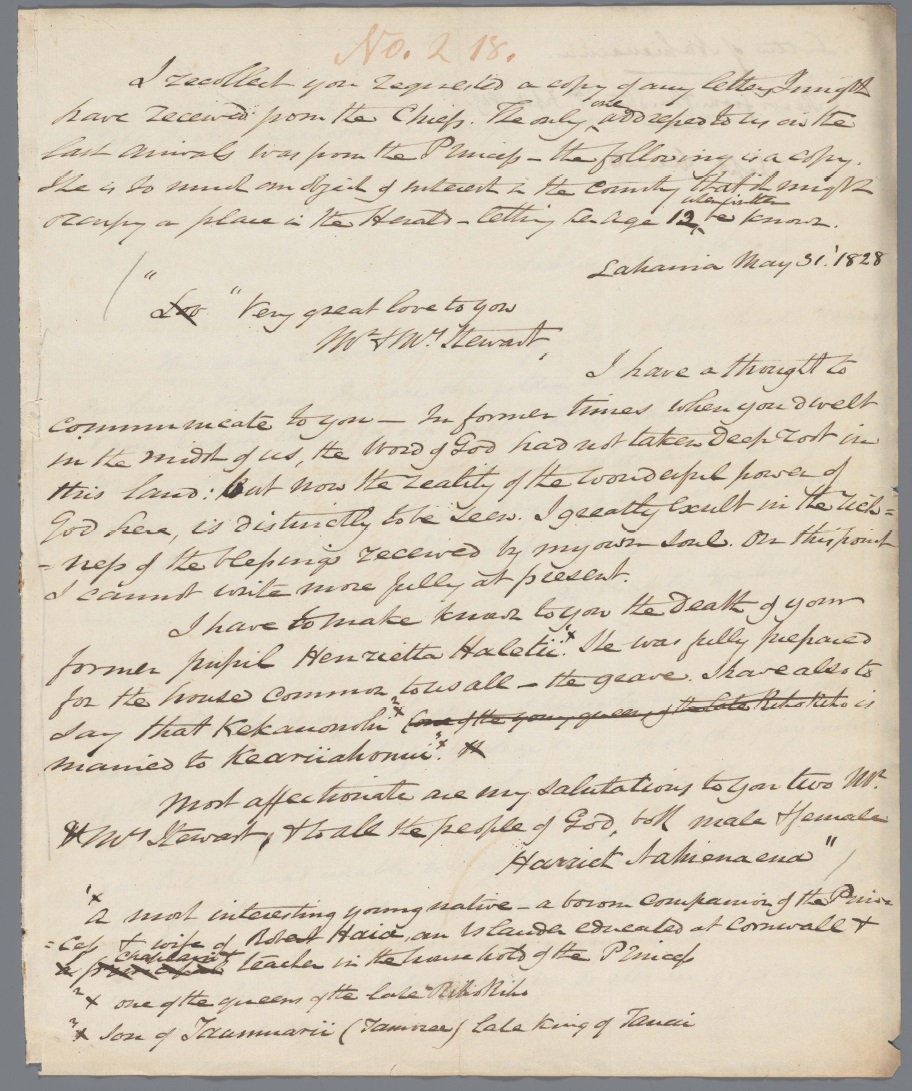 No. 2 18.
I recollect you requested a copy of any letters I might
have received from the Chiefs. The only one addressed to us in the
last arrivals was from the Princess – the following is a copy.
She is so much an object of interest in the country that it might
occupy a place in the Herald – letting her age 12 be known.
Lahaina May 31. 1828
"
Lov " Very great love to you
Mr & Mrs Stewart,
I have a thought to
communicate to you – In former times when you dwelt
in the midst of us, the Word of God had not taken deep root in
this land: but now the reality of the wonderful power of
God here, is distinctly to be seen. I greatly exult in the rich=
=ness of the blessings received by my own soul. On this point
I cannot write more fully at present.
I have to make known to you the death of your
former pupil Henrietta Haletii 1x. She was fully prepared
for the house common to us all – the grave. I have also to
say that Kekauonohi 2x (one of the young queens of the late Rihoriho is
married to Keariiahonui 3x.
Most affectionate are my salutations to you two Mr.
& Mrs Stewart, & to all the people of God, both male & female
Harriet Nahienaena"
1x A most interesting young native – a bosom companion of the Prin=
=cess & wife of Robert Haia, an Islander educated at Cornwall &
chaplain & teacher in the household of the Princess
2x one of the queens of the late Rihoriho
3x Son of Taumuarii (Tamoree) late King of Tauai